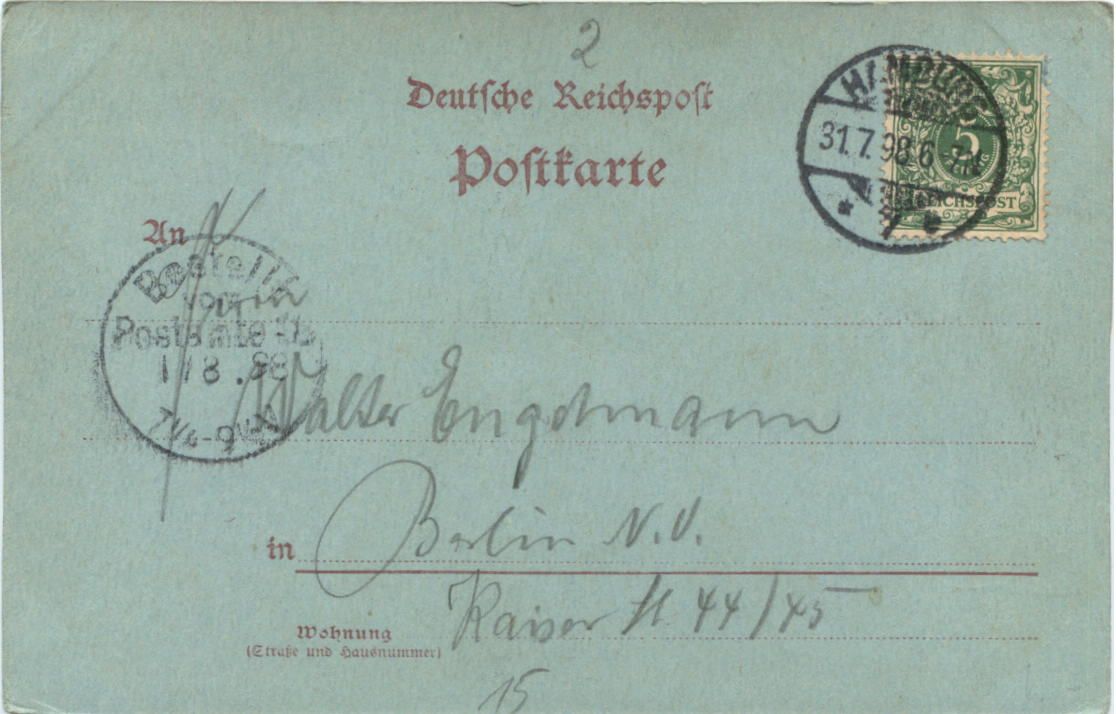 2
Deutsche Reichspost
Postkarte
HAMBURG
31.7.98 6-7N.
* 7 e
5
REICHSPOST
An
Bestellt
vom
Postamte
1/8.98
7¼-9V.
Walter Engelmann
in Berlin N.O.
Wohnung
(Straße und Hausnummer)
Kaiser st 44/45
15